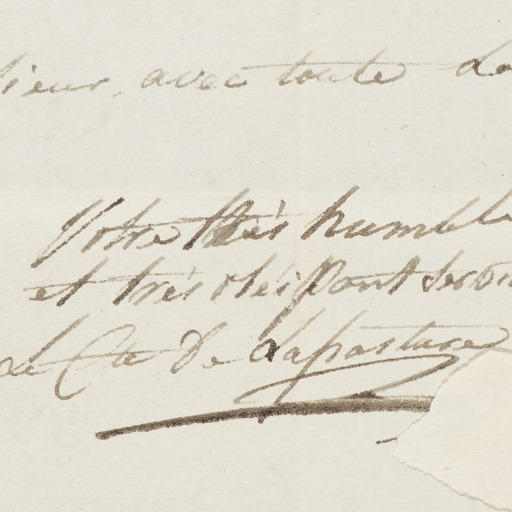 sieur, avec toute La
Votre très humble
et très obéissant servi
Le Cte De Lapasture